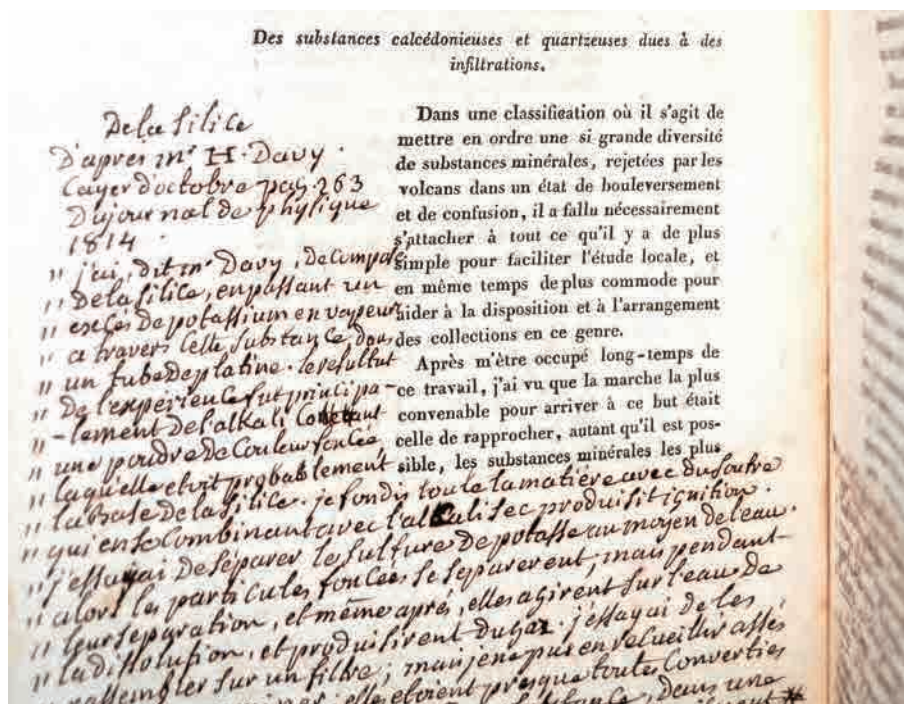 Des substances calcédonieuses et quartzeuses dues à des
infiltrations.
Dans une classification où il s'agit de
mettre en ordre une si grande diversité
de substances minérales, rejetées par les
volcans dans un état de bouleversement
et de confusion, il a fallu nécessairement
s'attacher à tout ce qu'il y a de plus
simple pour faciliter l'étude locale, et
en même temps de plus commode pour
aider à la disposition et à l'arrangement
des collections en ce genre.
Après m'être occupé long-temps de
ce travail, j'ai vu que la marche la plus
convenable pour arriver à ce but était
celle de rapprocher, autant qu'il est pos-
sible, les substances minérales les plus
De la silice
D'apres mr H. Davy.
Cayer d'octobre pag. 263
Du journal de physique
1814.
" j'ai, dit mr Davy, Decomposé
" De la silice, en passant un
" excès de potassium en vapeurs
" a travers cette substance dans
" un tube de platine. le resultat
" De l'expérience fut principa-
" -lement de l'alkali
" une poudre de Couleur foncée,
" laqu'elle etoit probablement
" la Base de la silice. je fondis toute la matière avec du soufre
" qui en se Combinant avec l'alkali sec produisit ignition.
" j'essayai De séparer le sulfure De potasse au moyen de l'eau.
" alors les particules foncées se séparerent, mais pendant
" leur separation, et même aprés, elles agirent sur l'eau de
" la dissolution, et produisirent du gaz. j'essayai de les
" rassembler sur un filtre; mais je ne pus en recueillir assés
elles etoient presque toutes Converties
dans une